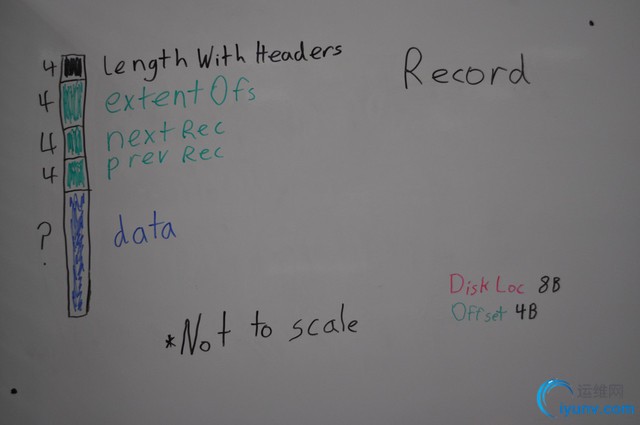 Record
4 Length With Headers
4 extentOfs
4 nextRec
4 prevRec
? data
DiskLoc 8B
Offset 4B
*Not to scale
运维网
iyunv.com